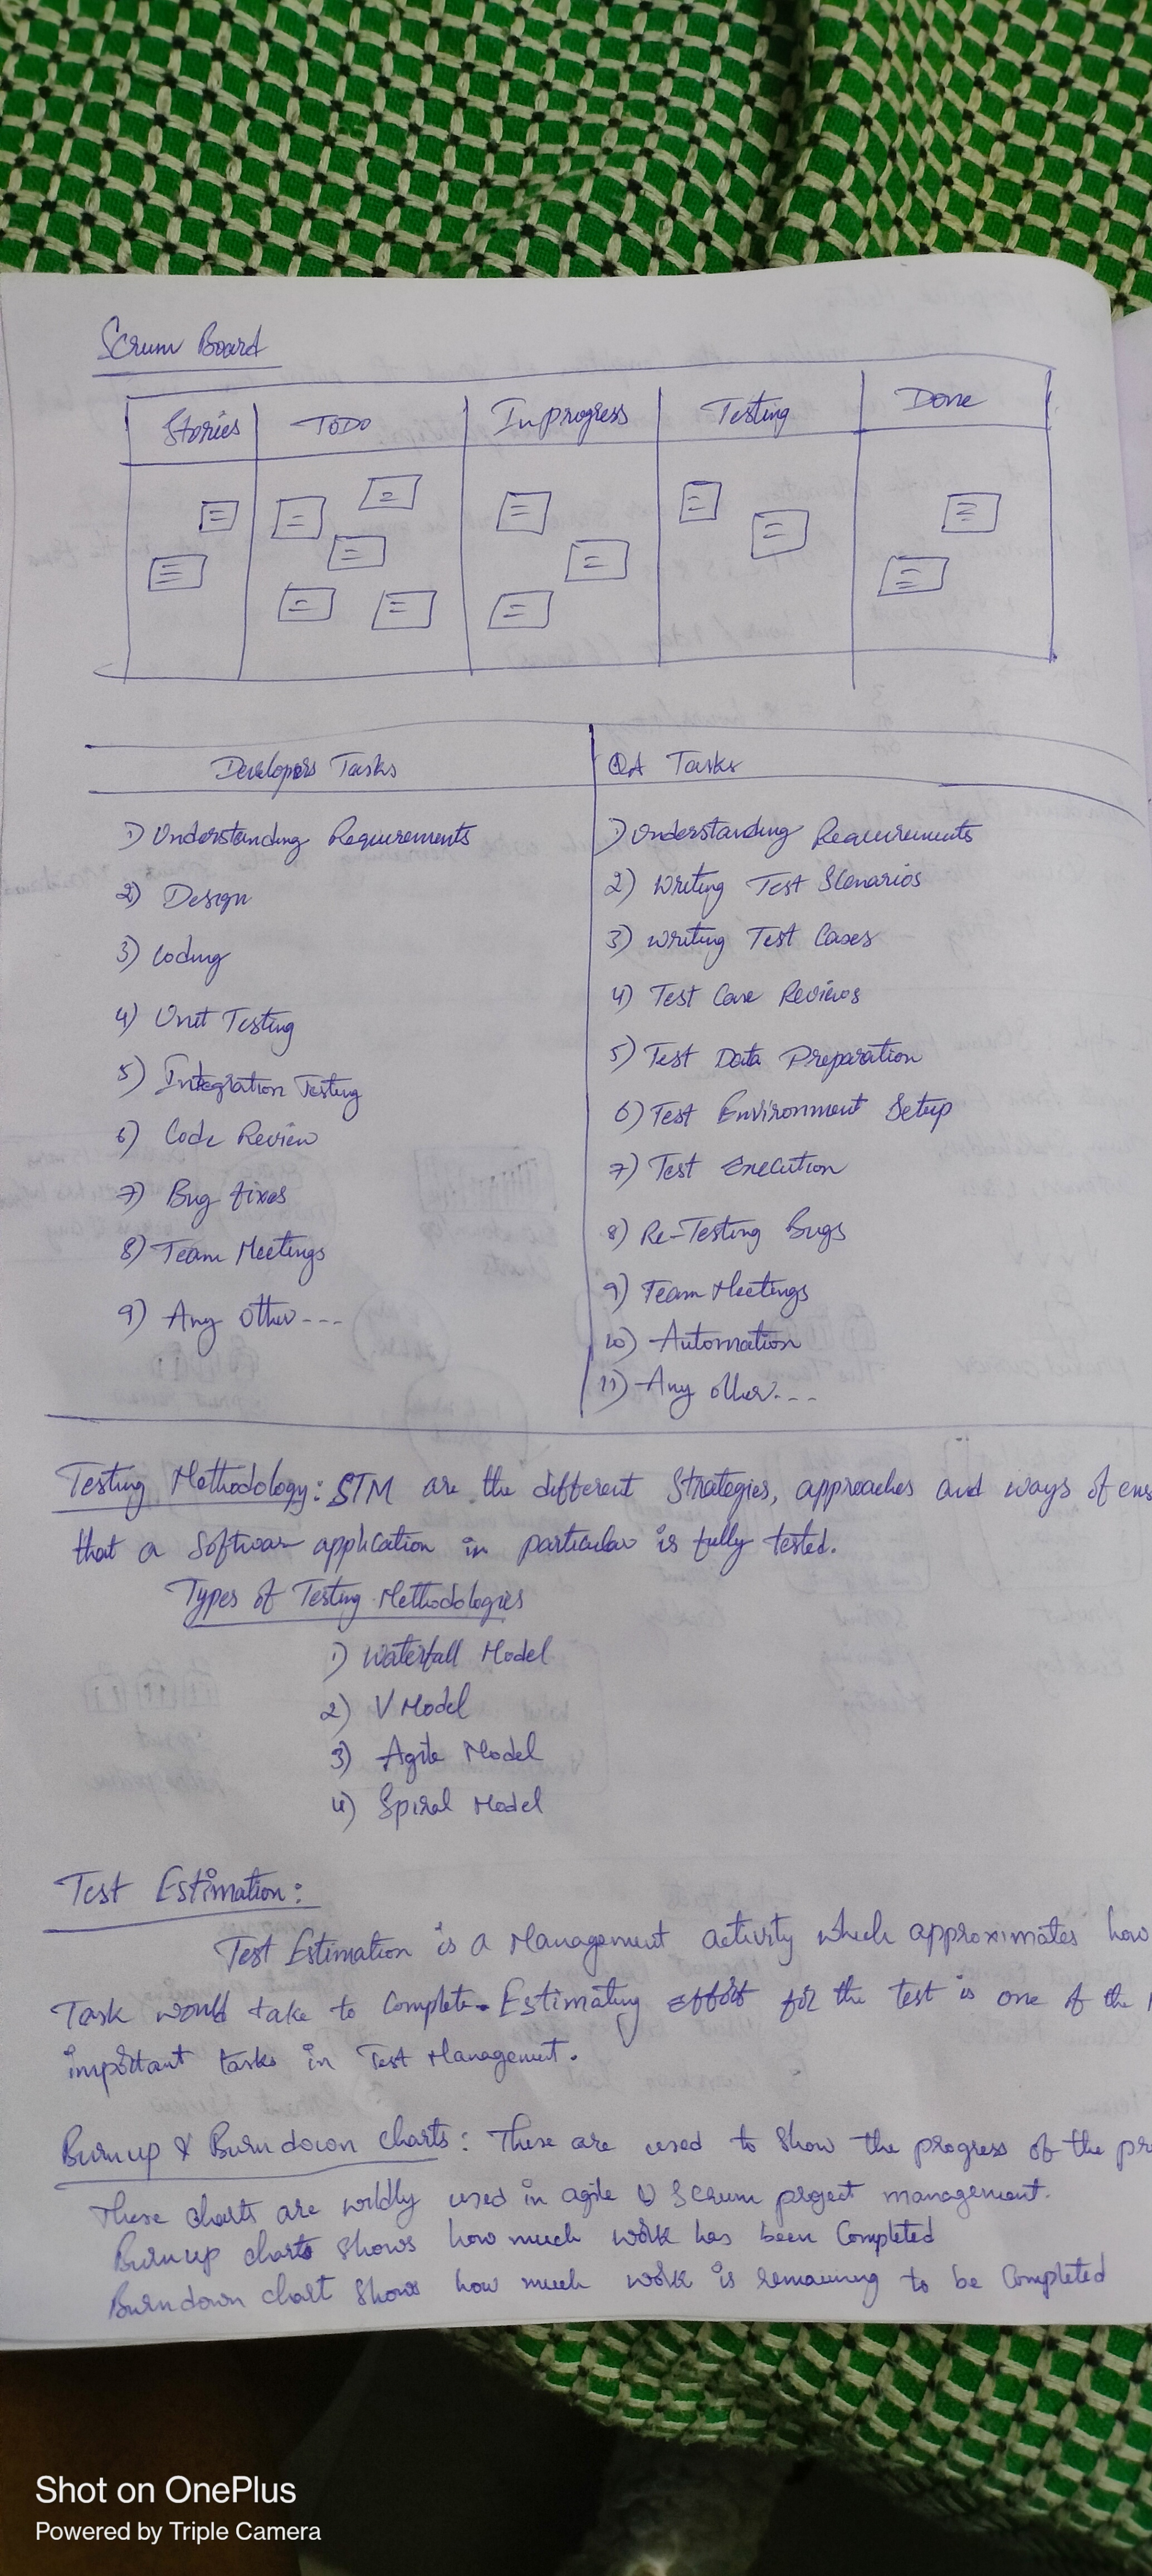 Scrum Board
Stories TODO Inprogress Testing Done
Developers Tasks
1) Understanding Requirements
2) Design
3) Coding
4) Unit Testing
5) Integration Testing
6) Code Review
7) Bug fixes
8) Team Meetings
9) Any other---
QA Tasks
1) Understanding Requirements
2) Writing Test Scenarios
3) Writing Test Cases
4) Test Case Reviews
5) Test Data Preparation
6) Test Environment Setup
7) Test Execution
8) Re-Testing Bugs
9) Team Meetings
10) Automation
11) Any other---
Testing Methodology: STM are the different Strategies, approaches and ways of ens
that a Software application in particular is fully tested.
Types of Testing Methodologies
1) Waterfall Model
2) V Model
3) Agile Model
4) Spiral Model
Test Estimation:
Test Estimation is a Management activity which approximates how
Task would take to Complete. Estimating effort for the test is one of the
important tasks in Test Management.
Burnup & Burndown charts: These are used to show the progress of the pr
These charts are wildly used in agile & Scrum project management.
Burnup charts shows how much work has been Completed
Burndown chart shows how much work is remaining to be Completed
Shot on OnePlus
Powered by Triple Camera